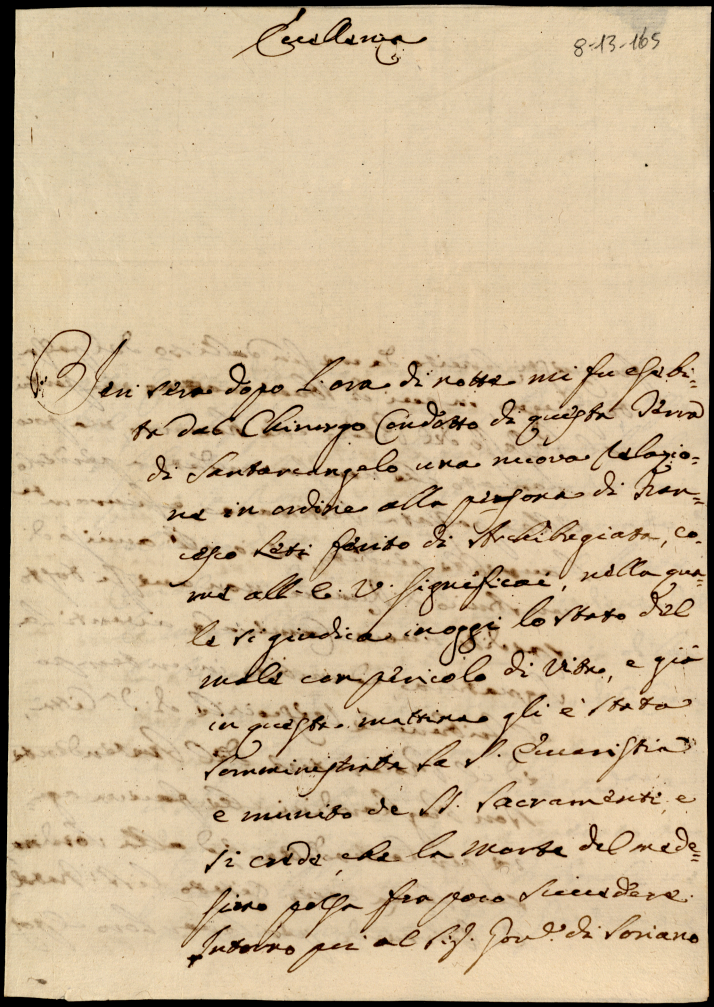 Eccellenza
8-13-165
Jeri sera dopo l'ora di notte mi fu esebi-
ta dal Chirurgo Condotto di questa Terra
di Santarcangelo una nuova Relazio-
ne in ordine alla persona di Fran-
cesco Leti ferito di Archibugiata, co-
me all'E. V. significai, nella qua-
le si giudica in oggi lo stato del
male con pericolo di vita, e già
in questa mattina gli è stata
somministrata la S. Eucaristia
e munito de SS. Sacramenti, e
si crede, che la morte del mede-
simo possa fra poco succedere.
Intorno poi al Sig. Gov.e di Soriano